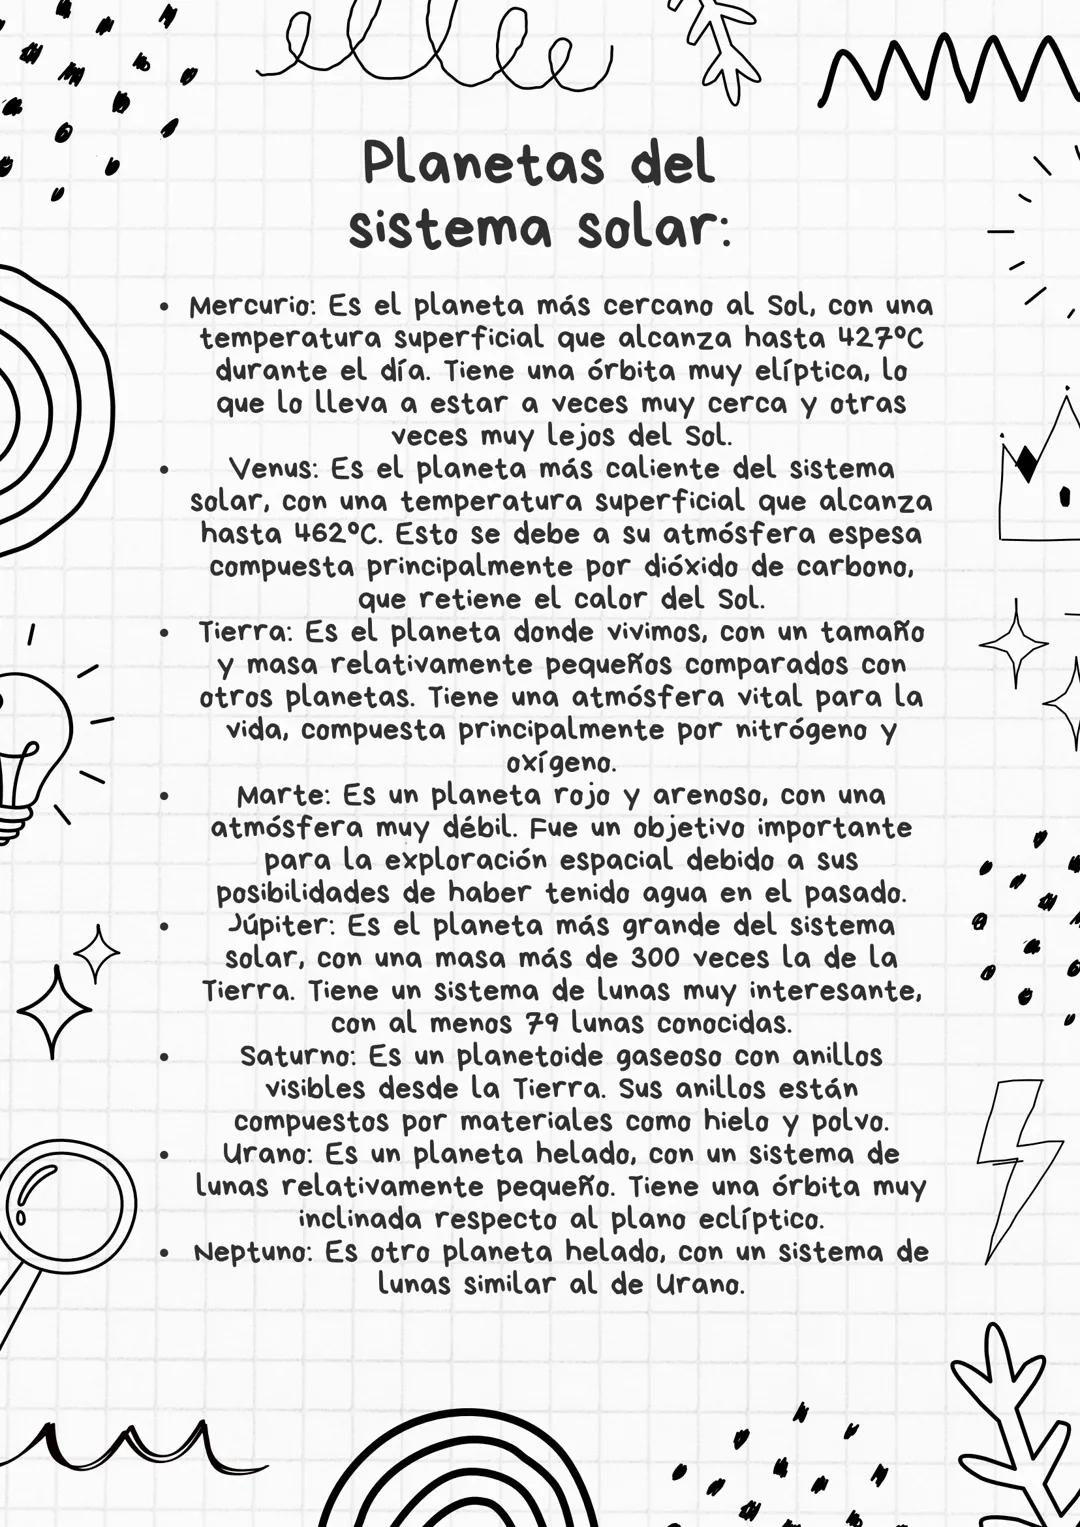 Planetas del
sistema solar:
• Mercurio: Es el planeta más cercano al Sol, con una
temperatura superficial que alcanza hasta 427ºC
durante el día. Tiene una órbita muy elíptica, lo
que lo lleva a estar a veces muy cerca y otras
veces muy lejos del Sol.
• Venus: Es el planeta más caliente del sistema
solar, con una temperatura superficial que alcanza
hasta 462ºC. Esto se debe a su atmósfera espesa
compuesta principalmente por dióxido de carbono,
que retiene el calor del Sol.
• Tierra: Es el planeta donde vivimos, con un tamaño
y masa relativamente pequeños comparados con
otros planetas. Tiene una atmósfera vital para la
vida, compuesta principalmente por nitrógeno y
oxígeno.
• Marte: Es un planeta rojo y arenoso, con una
atmósfera muy débil. Fue un objetivo importante
para la exploración espacial debido a sus
posibilidades de haber tenido agua en el pasado.
• Júpiter: Es el planeta más grande del sistema
solar, con una masa más de 300 veces la de la
Tierra. Tiene un sistema de lunas muy interesante,
con al menos 79 lunas conocidas.
• Saturno: Es un planetoide gaseoso con anillos
visibles desde la Tierra. Sus anillos están
compuestos por materiales como hielo y polvo.
• Urano: Es un planeta helado, con un sistema de
lunas relativamente pequeño. Tiene una órbita muy
inclinada respecto al plano eclíptico.
• Neptuno: Es otro planeta helado, con un sistema de
lunas similar al de Urano.